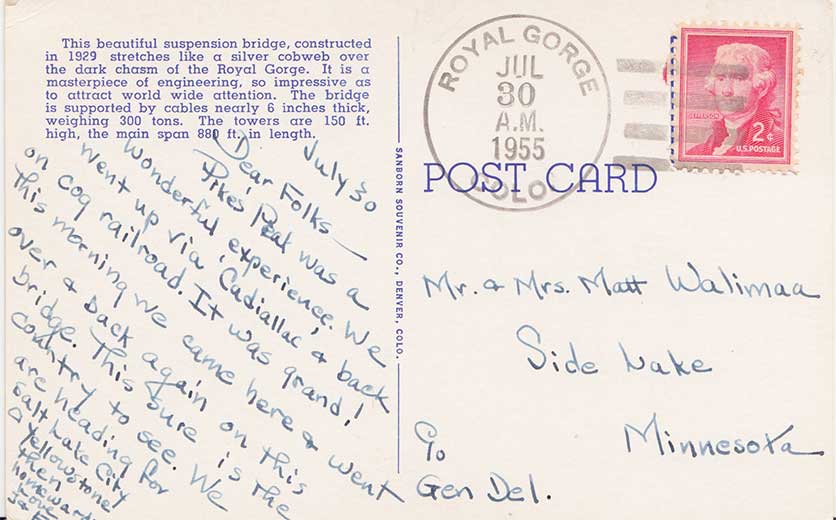 This beautiful suspension bridge, constructed
in 1929 stretches like a silver cobweb over
the dark chasm of the Royal Gorge. It is a
masterpiece of engineering, so impressive as
to attract world wide attention. The bridge
is supported by cables nearly 6 inches thick,
weighing 300 tons. The towers are 150 ft.
high, the main span 880 ft. in length.
July 30
Dear Folks—
Pikes Peak was a
wonderful experience. We
went up via "Cadiallac" & back
on cog railroad. It was grand!
This morning we came here & went
over & back again on this
bridge. This sure is the
country to see. We
are heading for
Salt Lake City
& Yellowstone
then
homeward.
Love
SANBORN SOUVENIR CO., DENVER, COLO.
ROYAL GORGE
JUL
30
A.M.
1955
COLO.
JEFFERSON
2¢
U.S. POSTAGE
POST CARD
Mr. & Mrs. Matt Walimaa
Side Lake
Minnesota
c/o
Gen Del.